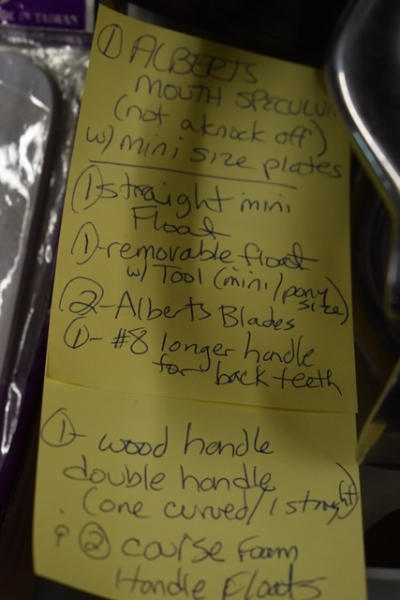 MADE IN TAIWAN
① ALBERTS
MOUTH SPECULUM
(not a knock off)
w/ mini size plates
① straight mini
Float
①-removable float
w/ Tool (mini/pony
size)
②-Alberts Blades
①- #8 longer handle
for back teeth
①- wood handle
double handle
(one curved/1 straight)
② course Foam
Handle Floats